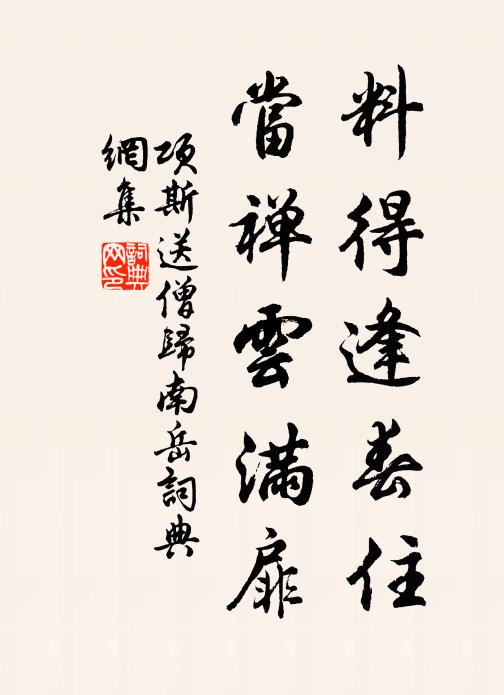 料得逢春住
當禅雲滿扉
項斯送僧歸南岳詞典
網集
詞典
网印